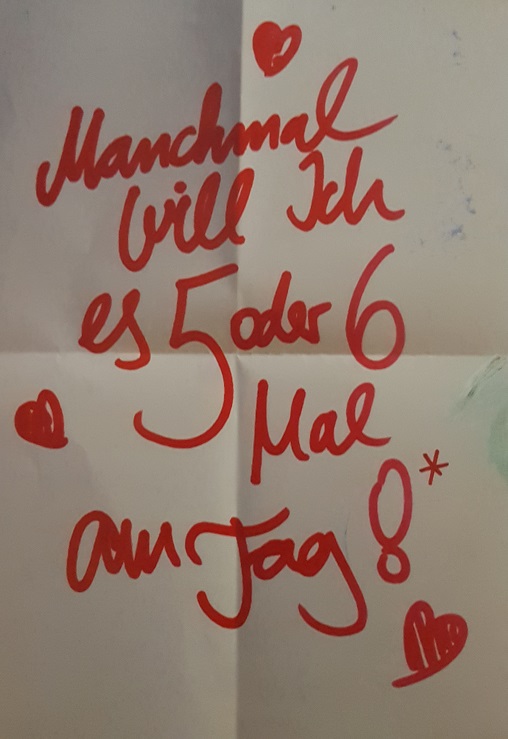 Manchmal
will Ich
es 5 oder 6
Mal
am Tag!*